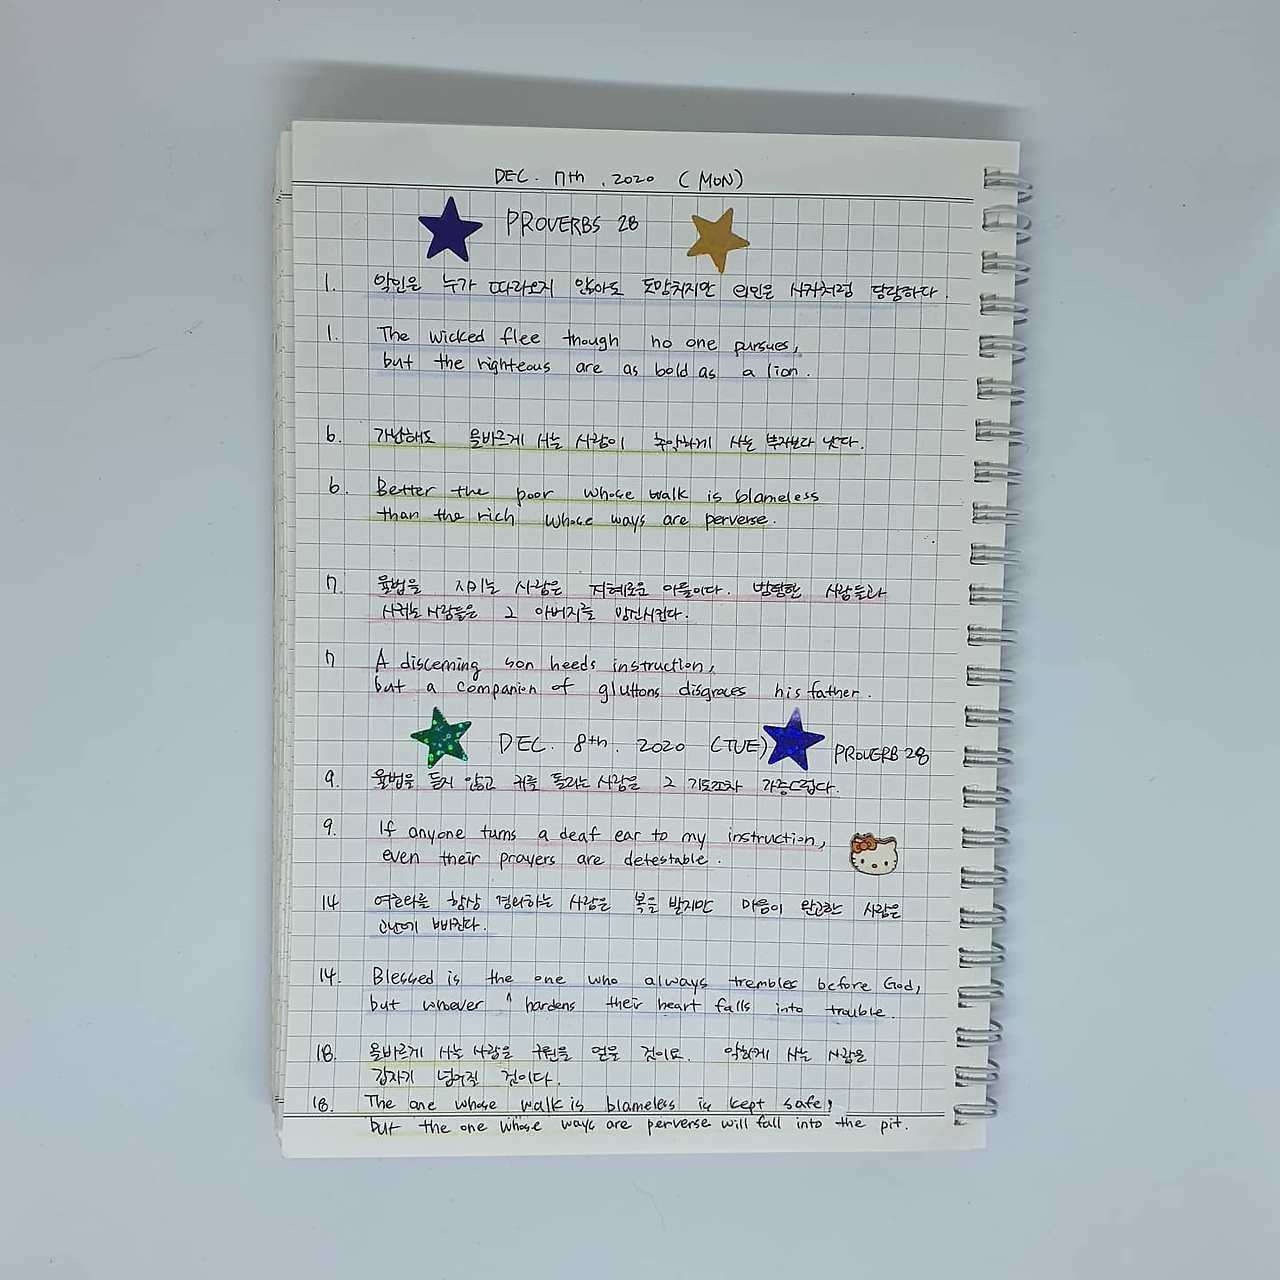 DEC. 7th. 2020 (MON)
PROVERBS 28
1. 악인은 누가 따라오지 않아도 도망치지만 의인은 사자처럼 당당하다.
1. The wicked flee though no one pursues,
but the righteous are as bold as a lion.
6. 가난해도 올바르게 사는 사람이 추악하게 사는 부자보다 낫다.
6. Better the poor whose walk is blameless
than the rich whose ways are perverse.
7. 율법을 지키는 사람은 지혜로운 아들이다. 방탕한 사람들과
사귀는 사람들은 그 아버지를 망신시킨다.
7 A discerning son heeds instruction,
but a companion of gluttons disgraces his father.
DEC. 8th. 2020 (TUE) PROVERB 28
9. 율법을 듣지 않고 귀를 돌리는 사람은 그 기도조차 가증스럽다.
9. If anyone turns a deaf ear to my instruction,
even their prayers are detestable.
14 여호와를 항상 경외하는 사람은 복을 받지만 마음이 완고한 사람은
고난에 빠진다.
14. Blessed is the one who always trembles before God,
but whoever ^ hardens their heart falls into trouble.
18. 올바르게 사는 사람은 구원을 얻을 것이요. 악하게 사는 사람은
갑자기 넘어질 것이다.
18. The one whose walk is blameless is kept safe,
but the one whose ways are perverse will fall into the pit.